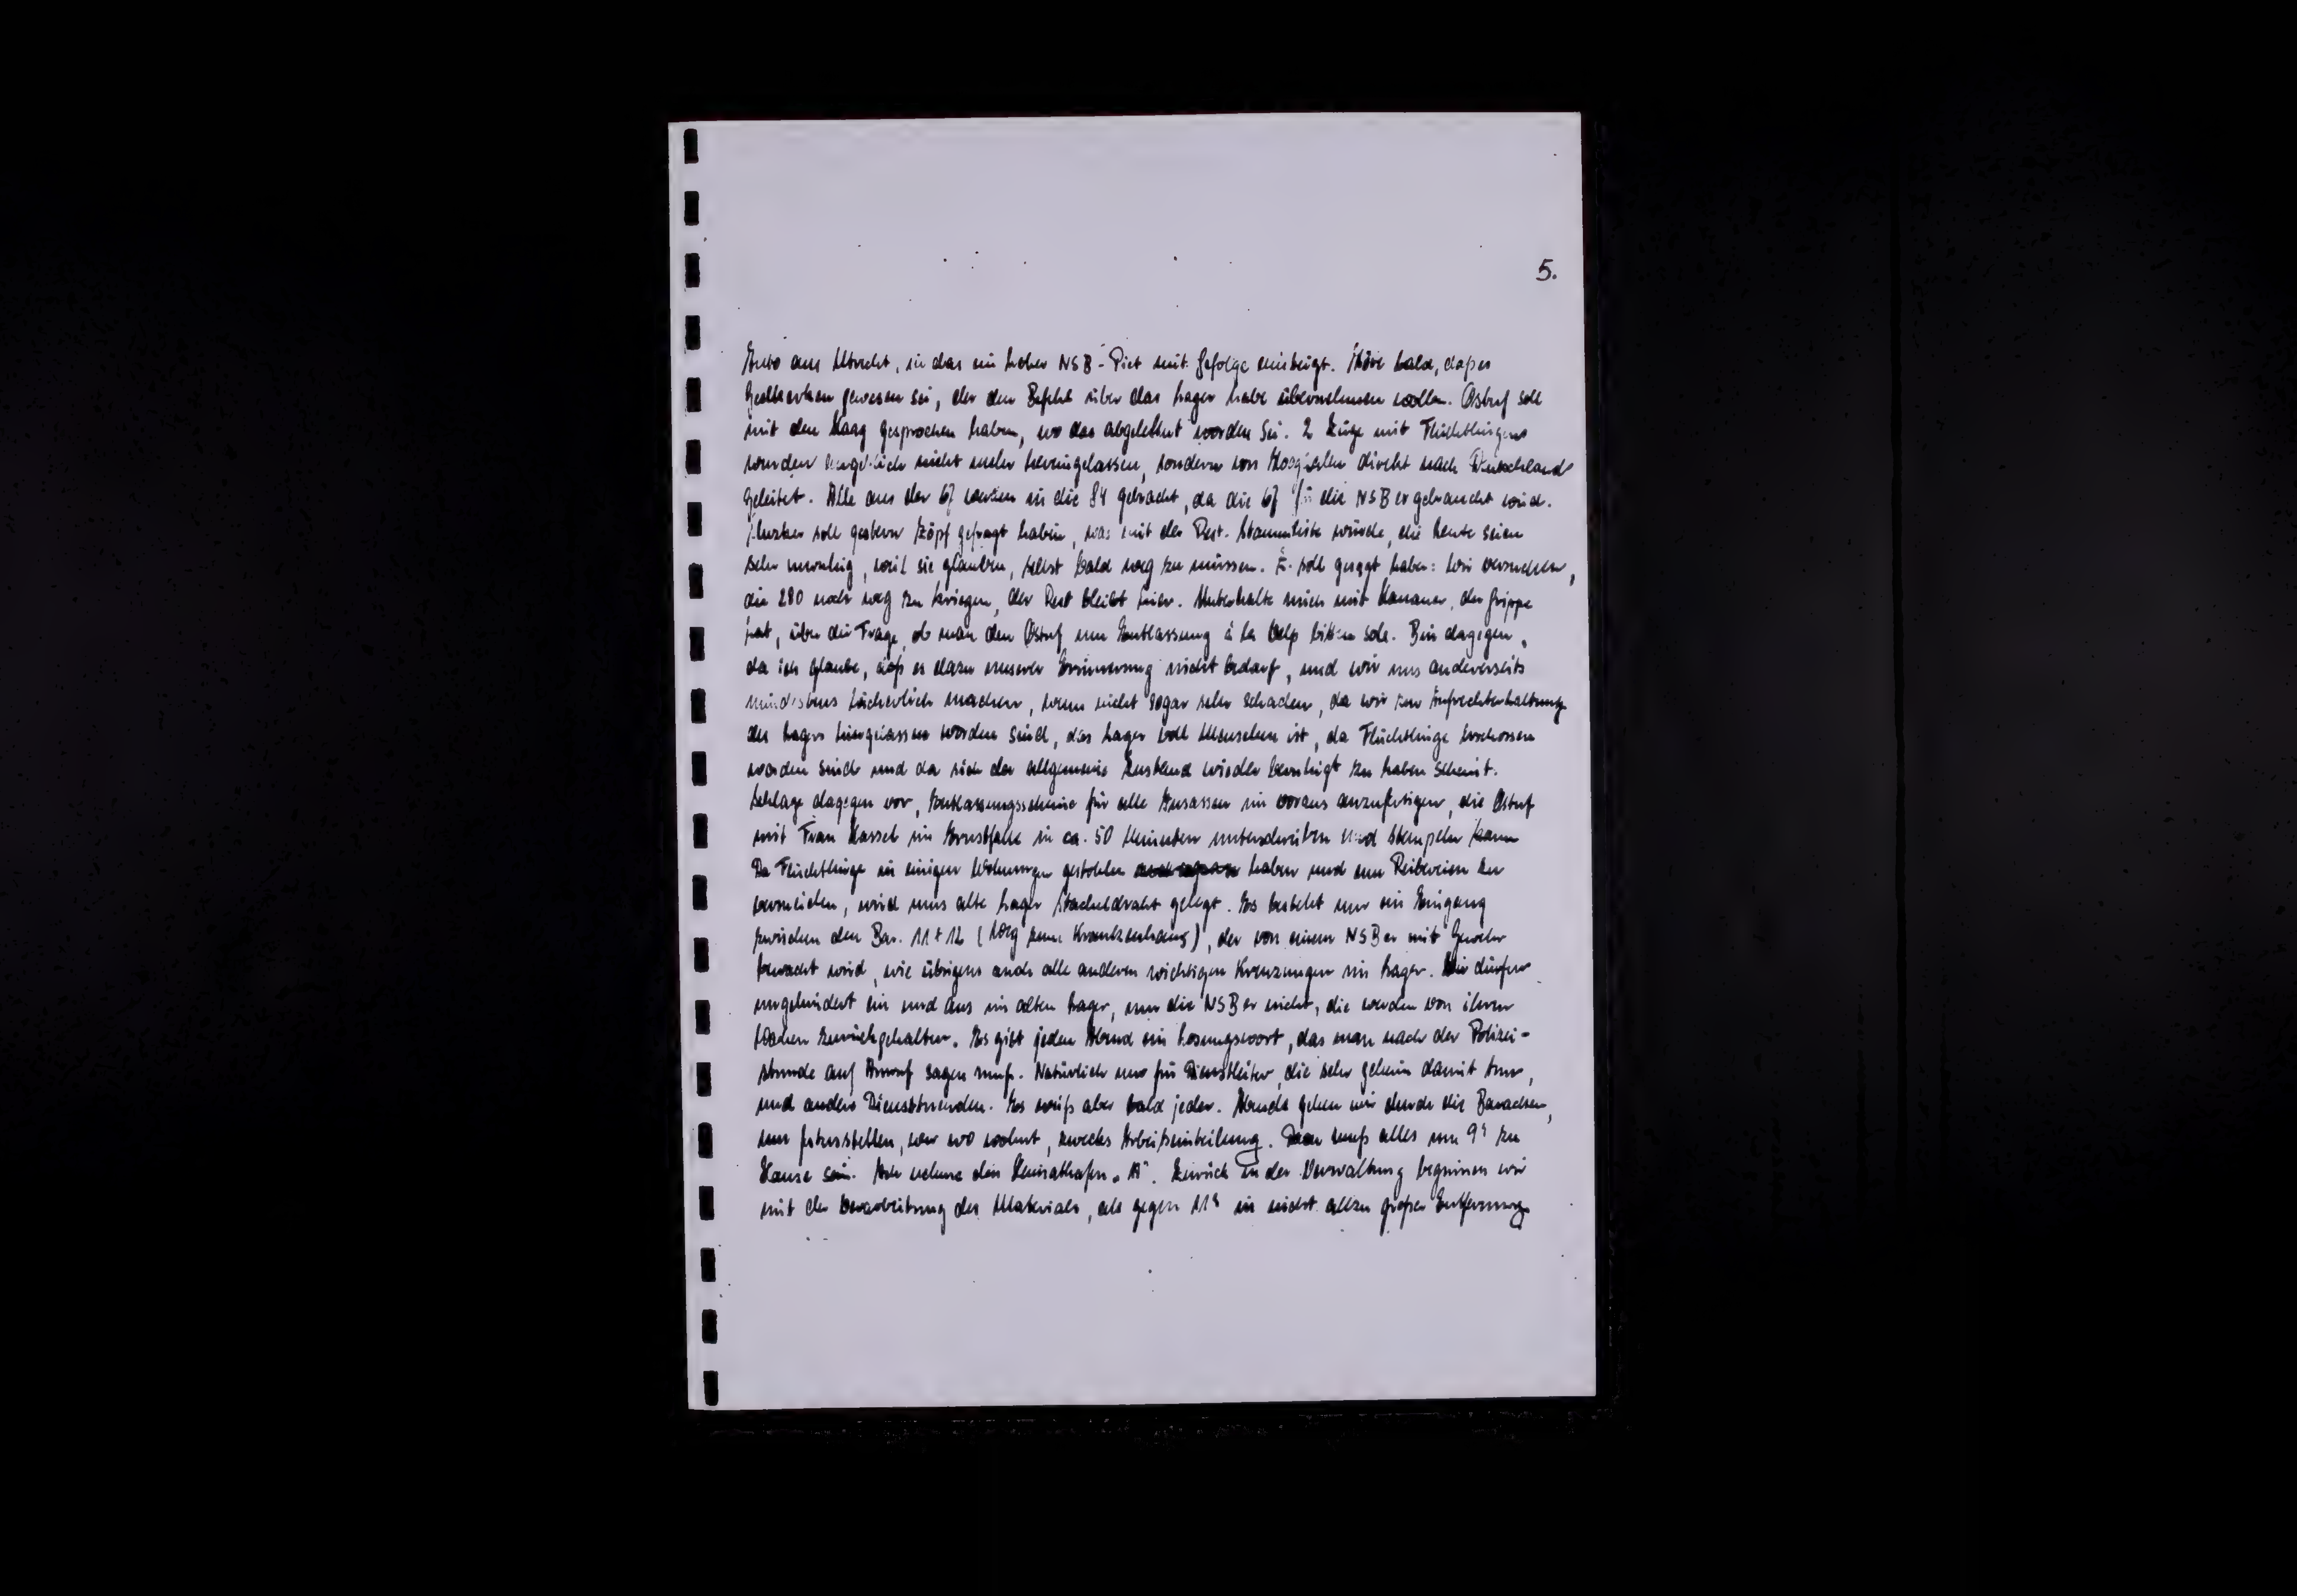 5.
Auto aus Utrecht, in das ein hoher NSB-Piet mit Gefolge einsteigt. Höre bald, daß es
Geelkerken gewesen sei, der den Befehl über das Lager habe übernehmen wollen. Ostuf soll
mit den Haag gesprochen haben, wo das abgelehnt worden sei. 2 Züge mit Flüchtlingen
wurden angeblich nicht mehr hereingelassen, sondern von Hooghalen direkt nach Deutschland
geleitet. Alle aus der 67 werden in die 84 gebracht, da die 67 für die NSBer gebraucht wird.
soll gestern Zöpf gefragt haben, was mit der Rest-Stammliste würde, die Leute seien
sehr unruhig, weil sie glauben, selbst bald weg zu müssen. Z. soll gesagt haben: Wir versuchen,
die 280 noch weg zu kriegen, der Rest bleibt hier. Unterhalte mich mit Hanauer, der Grippe
hat, über die Frage, ob man den Ostuf um Entlassung à la bitten soll. Bin dagegen,
da ich glaube, daß es dazu unserer Erinnerung nicht bedarf, und wir uns andererseits
mindestens lächerlich machen, wenn nicht sogar sehr schaden, da wir zur Aufrechterhaltung
des Lagers hiergelassen worden sind, das Lager voll Menschen ist, da Flüchtlinge erschossen
worden sind und da sich der allgemeine Zustand wieder beruhigt zu haben scheint.
Schlage dagegen vor, Entlassungsscheine für alle Insassen im voraus anzufertigen, die Ostuf
mit Frau Hassel im Ernstfalle in ca. 50 Minuten unterschreiben und stempeln kann
Da Flüchtlinge in einigen Wohnungen gestohlen haben und um Reibereien zu
vermeiden, wird ums alte Lager Stacheldraht gelegt. Es besteht nur ein Eingang
zwischen den Bar. 11 + 12 (Weg zum Krankenhaus), der von einem NSBer mit Gewehr
bewacht wird, wie übrigens auch alle anderen wichtigen Kreuzungen im Lager. Wir dürfen
ungehindert ein und aus im alten Lager, nur die NSBer nicht, die werden von ihren
Wachen zurückgehalten. Es gibt jeden Abend ein Losungswort, das man nach der Polizei-
stunde auf Anruf sagen muß. Natürlich nur für Dienstleiter, die sehr geheim damit tun,
und andere Diensttuenden. Es weiß aber bald jeder. Abends gehen wir durch die Baracken,
um festzustellen, wer wo wohnt, zwecks Arbeitseinteilung. Dann muß alles um 9h zu
Hause sein. Ich nehme den Heimathafen „A". Zurück in der Verwaltung beginnen wir
mit der Verarbeitung des Materials, als gegen 11h in nicht allzu großer Entfernung